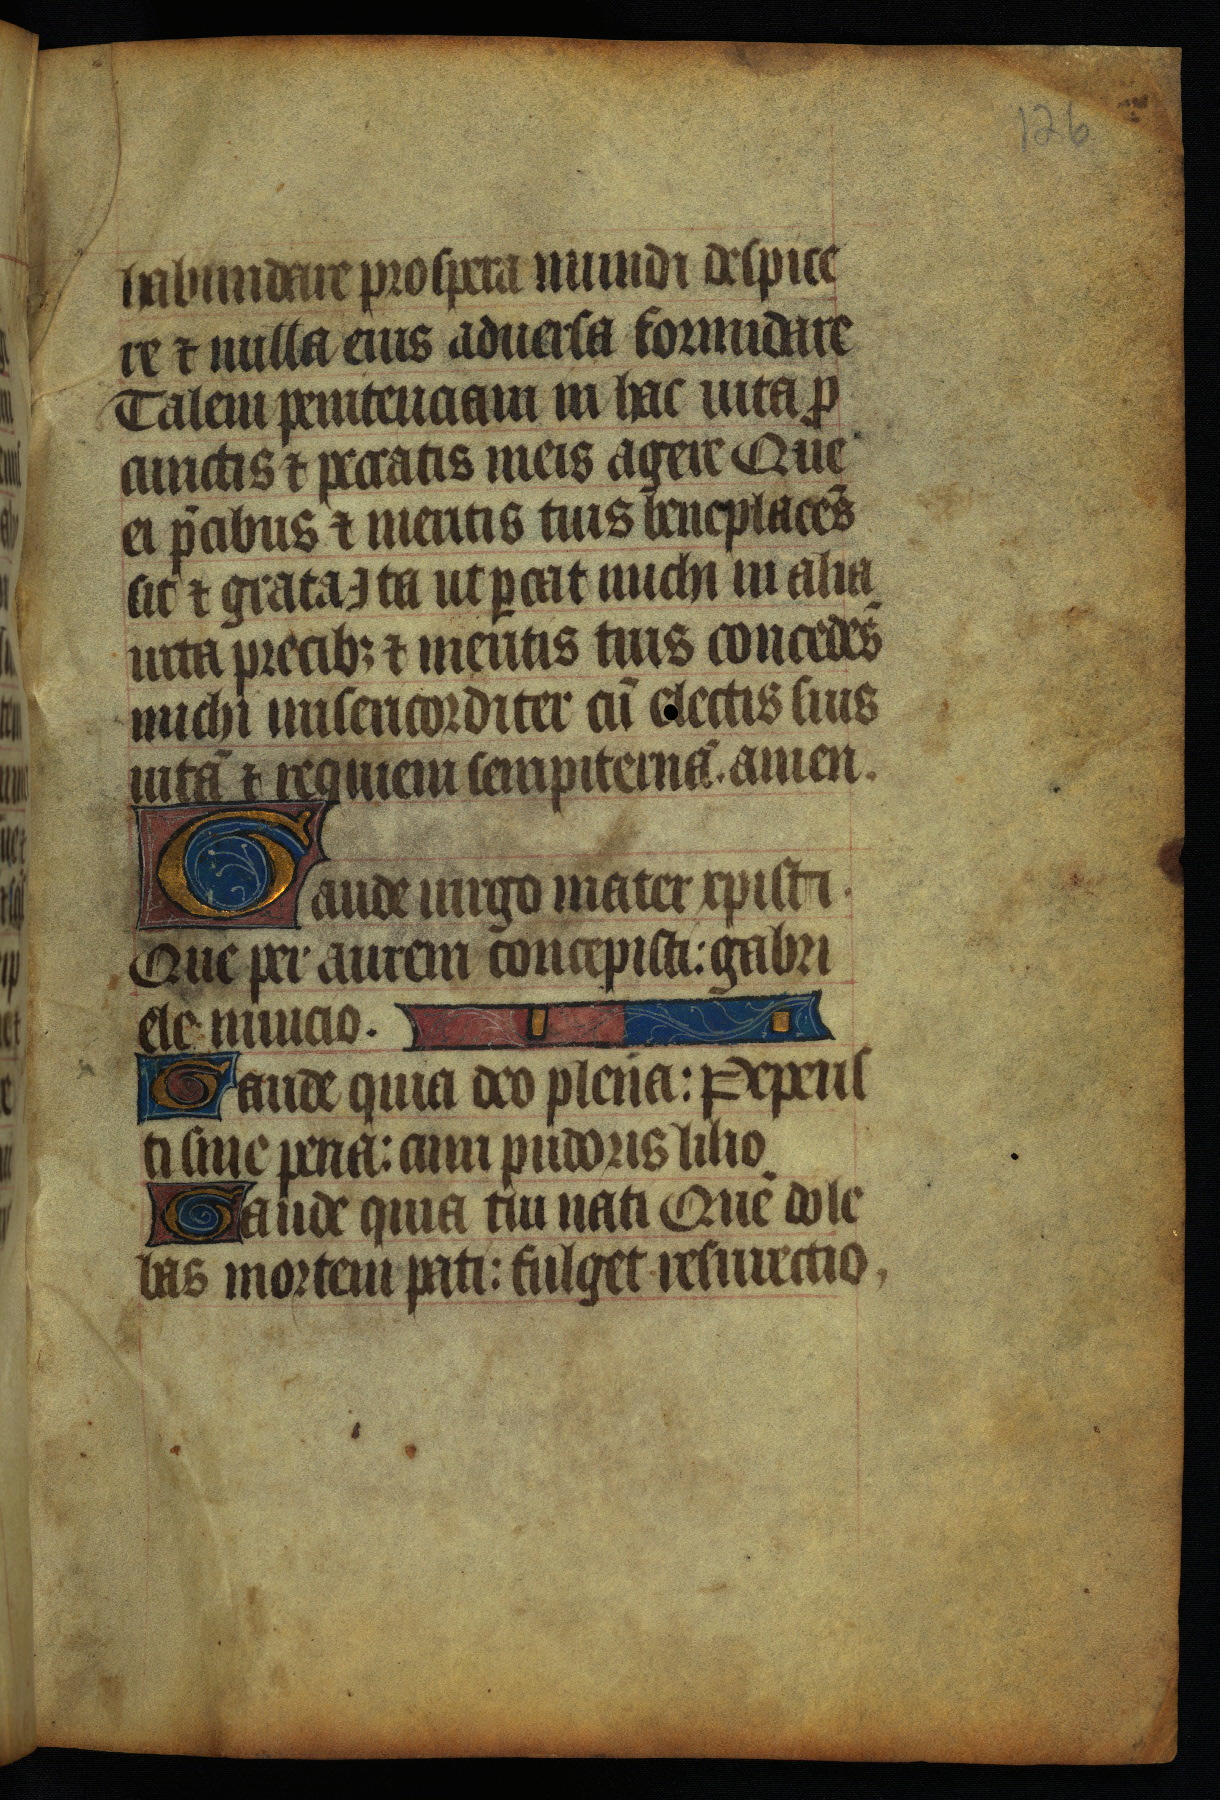 126
habundare prospera mundi despice
re ⁊ nulla eius aduersa formidare
Talem penitenciam in hac uita p̄
cunctis ⁊ peccatis meis agere Que
ei p̄cibus ⁊ meritis tuis beneplacēs
sit ⁊ grata Ita ut ꝑcat michi in alia
uita precibꝫ ⁊ meritis tuis concedēs
michi misericorditer cū electis suis
uitā ⁊ requiem sempiternā. amen.
Gaude uirgo mater xpisti.
Que per aurem concepisti: gabri
ele nuncio.
Gaude quia deo plena: Peperis
ti sine pena: cum pudoris lilio
Gaude quia tui nati Quē dole
bas mortem pati: fulget resurrectio,